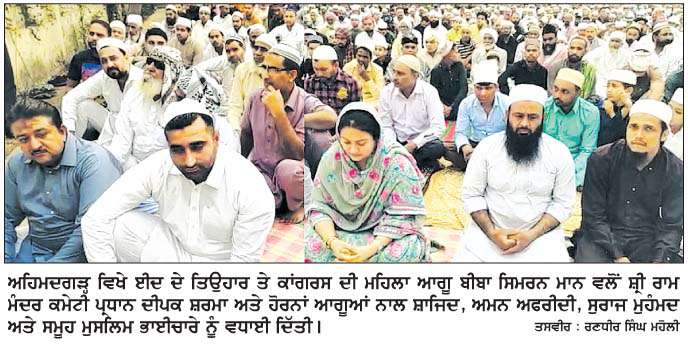 ਅਹਿਮਦਗੜ੍ਹ ਵਿਖੇ ਈਦ ਦੇ ਤਿਉਹਾਰ ਤੇ ਕਾਂਗਰਸ ਦੀ ਮਹਿਲਾ ਆਗੂ ਬੀਬਾ ਸਿਮਰਨ ਮਾਨ ਵਲੋਂ ਸ਼੍ਰੀ ਰਾਮ
ਮੰਦਰ ਕਮੇਟੀ ਪ੍ਰਧਾਨ ਦੀਪਕ ਸ਼ਰਮਾ ਅਤੇ ਹੋਰਨਾਂ ਆਗੂਆਂ ਨਾਲ ਸ਼ਾਜਿਦ, ਅਮਨ ਅਫਰੀਦੀ, ਸੁਰਾਜ ਮੁਹੰਮਦ
ਅਤੇ ਸਮੂਹ ਮੁਸਲਿਮ ਭਾਈਚਾਰੇ ਨੂੰ ਵਧਾਈ ਦਿੱਤੀ।
ਤਸਵੀਰ : ਰਣਧੀਰ ਸਿੰਘ ਮਹੋਲੀ